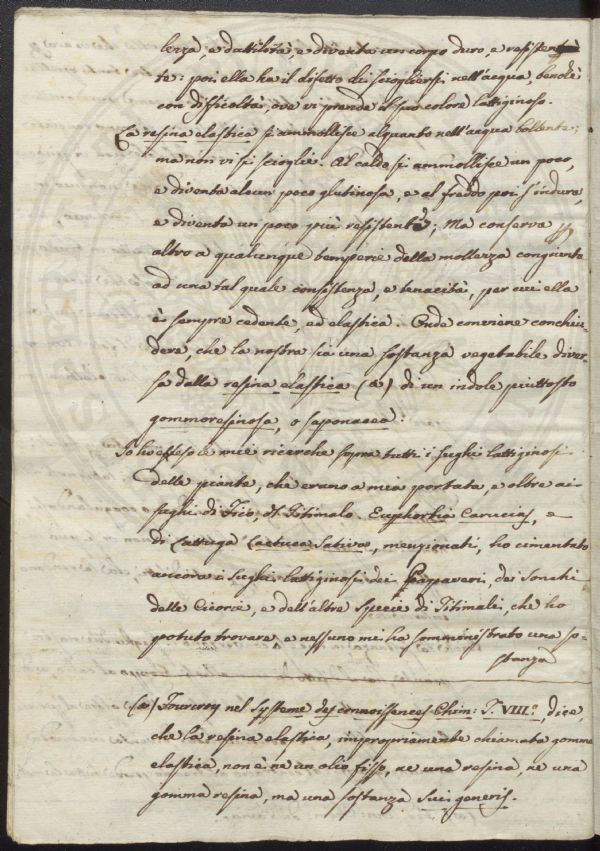 lezza, e duttilità, e diventa un corpo duro, e resisten-
te: poi ella ha il difetto di sciogliersi nell'acqua, benchè
con difficoltà, ove vi prende il suo colore lattiginoso.
La resina elastica si ammollisce alquanto nell'acqua bollente;
ma non vi si scioglie. Al caldo si ammollisce un poco,
e diventa alcun poco glutinosa, e al freddo poi s'indura,
e diventa un poco più resistente; Ma conserva per
altro a qualunque temperie della mollezza congiunta
ad una tal quale consistenza, e tenacità, per cui ella
è sempre cedente, ed elastica. Onde conviene conchiu-
dere, che la nostra sia una sostanza vegetabile diver-
sa dalla resina elastica (a) di un indole piuttosto
gommoresinosa, o saponacea:
Io ho esteso le mie ricerche sopra tutti i sughi lattiginosi
delle piante, che erano a mia portata, e oltre ai
sughi di Fico, di Titimalo Euphorbia Caracias, e
di Lattuga Lactuca Sativa, menzionati, ho cimentato
ancora i sughi lattiginosi dei Papaveri, dei Sonchi
delle Cicorie, e dell'altre specie di Titimali, che ho
potuto trovare, e nessuno mi ha somministrato una so-
stanza
(a) Fourcroy nel systeme des connoissences Chim: T. VIII.°, dice,
che la resina elastica, impropriamente chiamata gomma
elastica, non è ne un olio fisso, ne una resina, ne una
gomma resina, ma una sostanza sui generis.